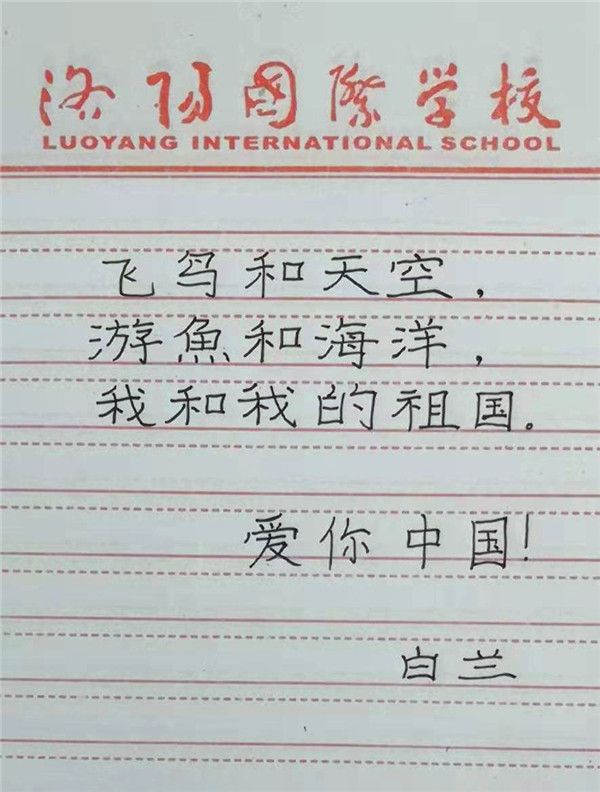 洛阳國際学校
LUOYANG INTERNATIONAL SCHOOL
飞鸟和天空，
游魚和海洋，
我和我的祖国。
爱你中国！
白兰